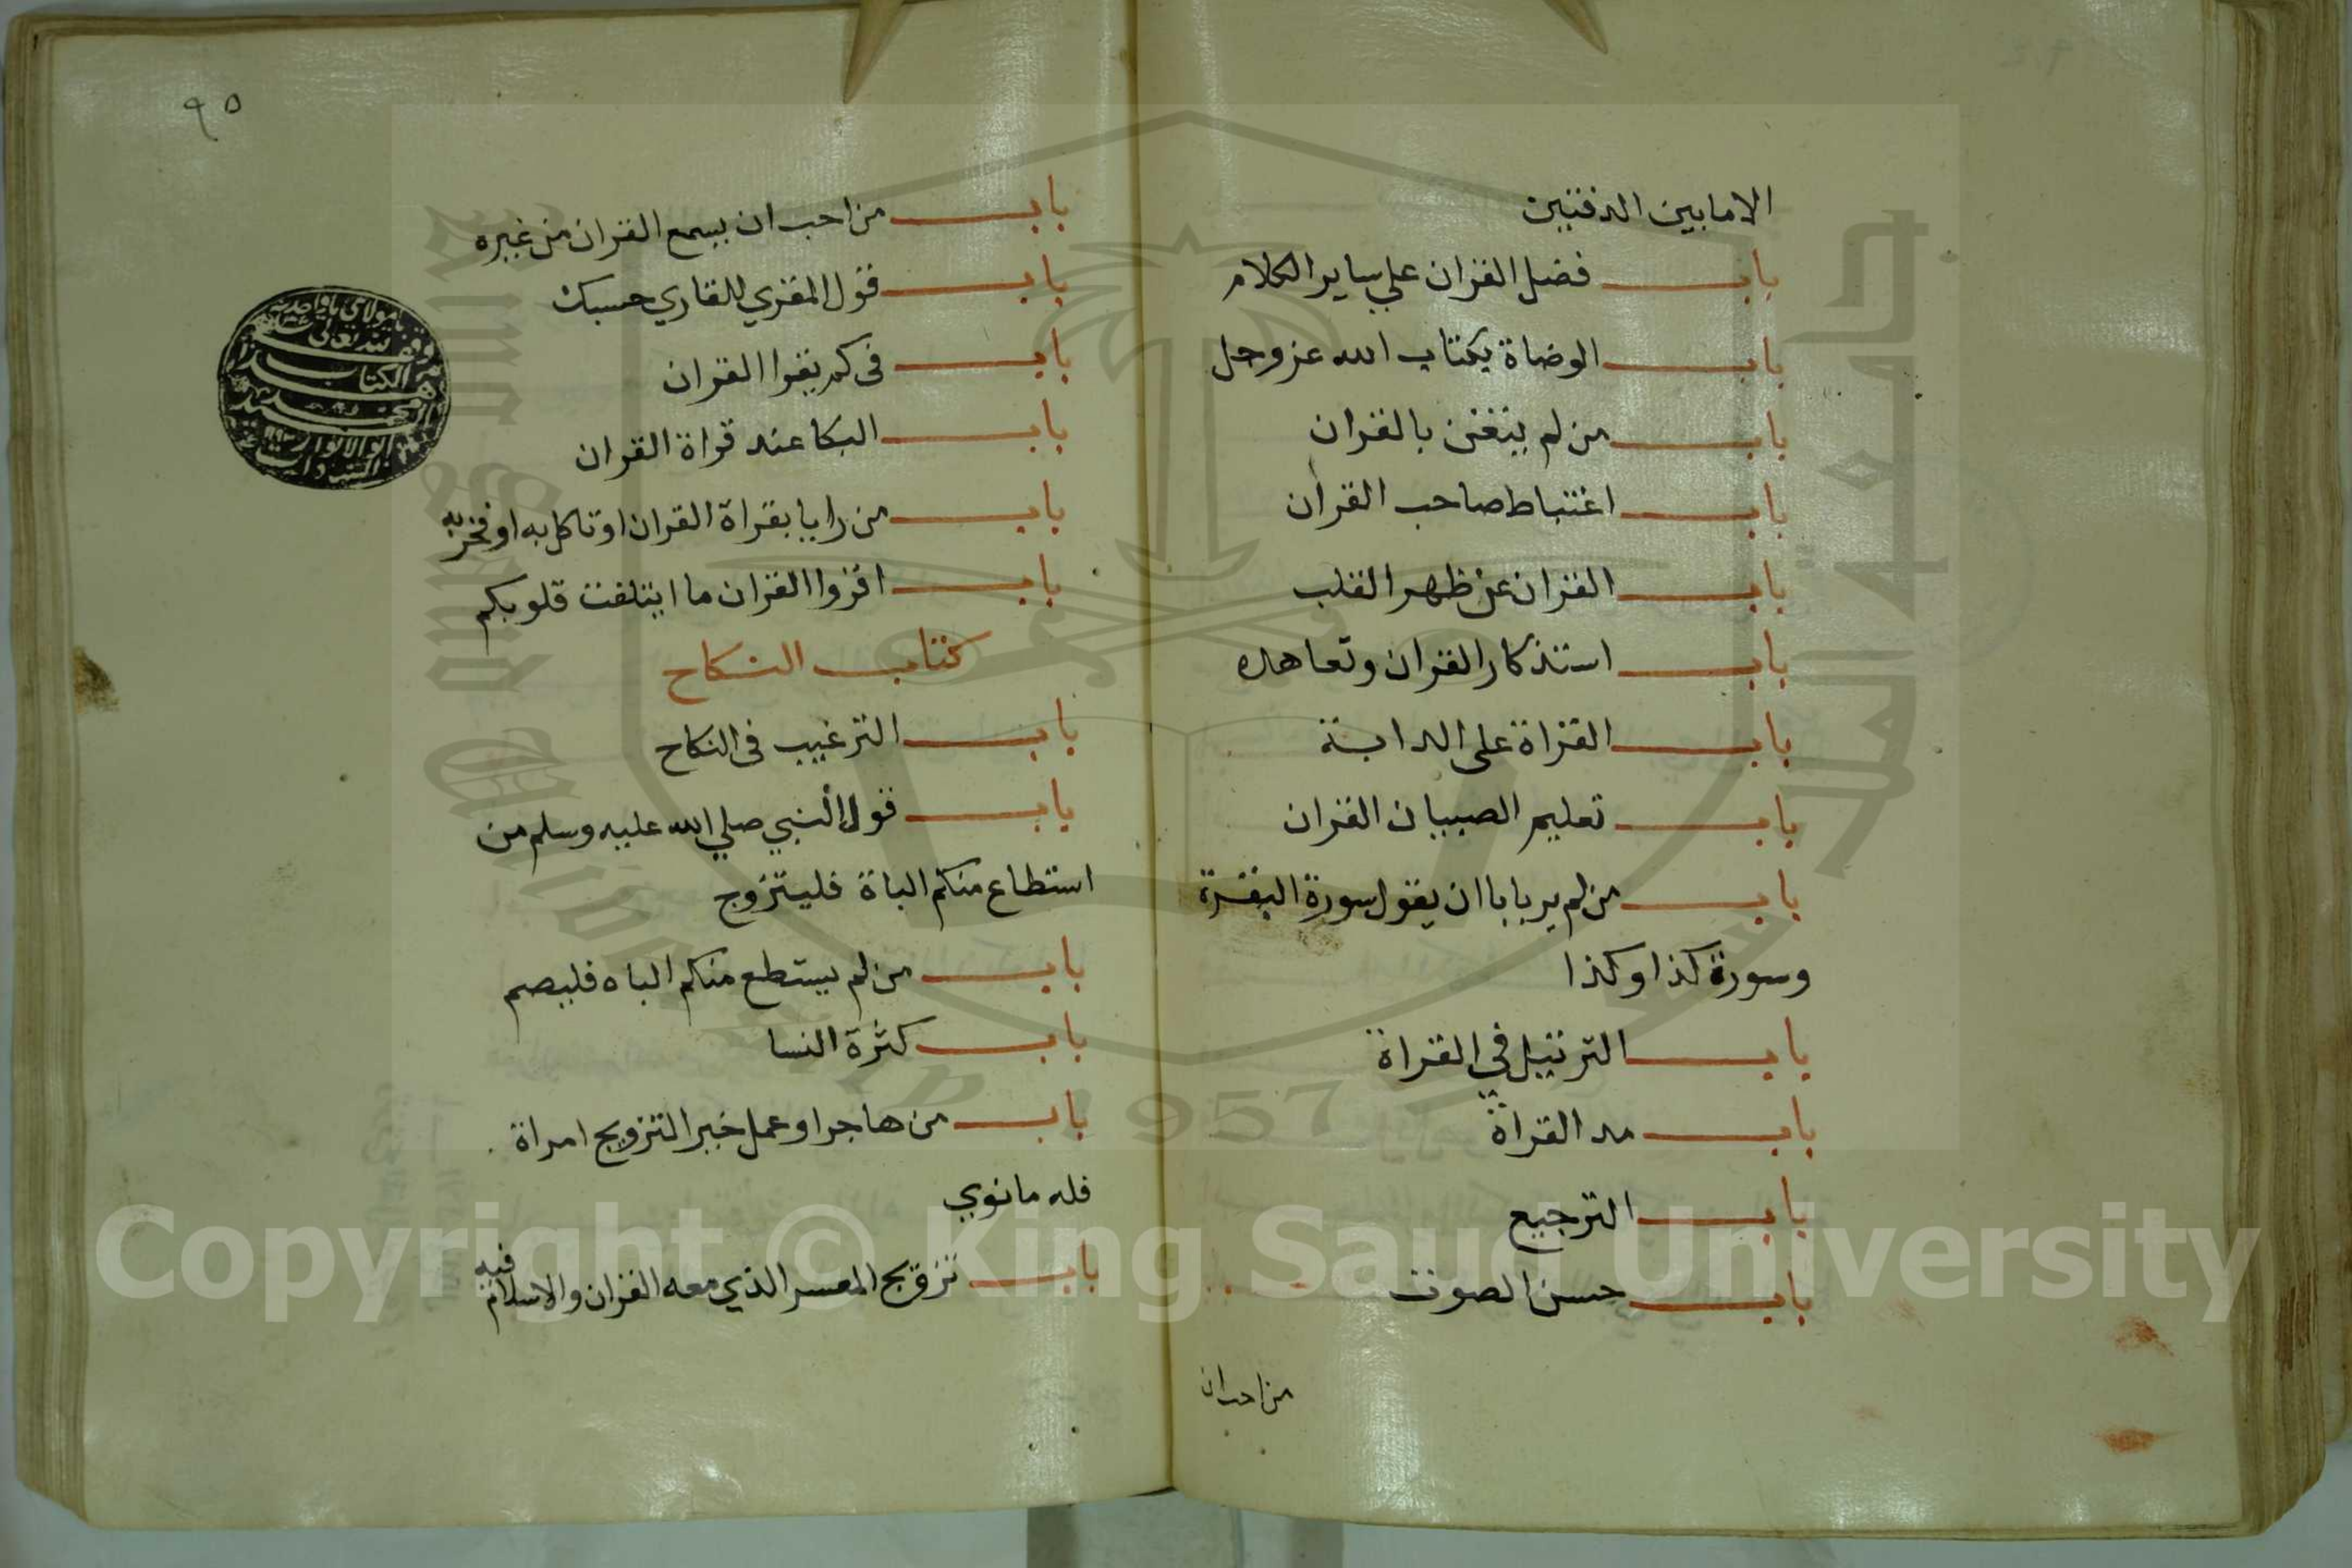 الا ما بين الدفتين
باب فضل القران علي ساير الكلام
باب الوضاة بكتاب الله عز وجل
باب من لم يتغن بالقران
باب اغتباط صاحب القران
باب القران عن ظهر القلب
باب استذكار القران وتعاهده
باب القراة على الدابة
باب تعليم الصبيان القران
باب من لم ير باباان يقول سورة البقرة
وسورة كذا وكذا
باب الترتيل في القراة
باب مد القراة
باب الترجيع
باب حسن الصوت
من احب ان
٩٥
باب من احب ان يسمع القران من غيره
باب قول المقري للقاري حسبك
باب في كم يقوا القران
باب البكا عند قراة القران
باب من رايا بقراة القران او تاكل به او فخر به
باب اقروا القران ما ايتلفت قلوبكم
كتاب النكاح
باب الترغيب في النكاح
باب قول النبي صلي الله عليه وسلم من
استطاع منكم الباة فليتزوج
باب من لم يستطع منكم الباه فليصم
باب كثرة النسا
باب من هاجر او عمل خير التزويج امراة
فله ما نوي
باب تزويج المعسر الذي معه القران والاسلام فيه
وقف
لله تعالى
الكتاب
Copyright © King Saud University
1957